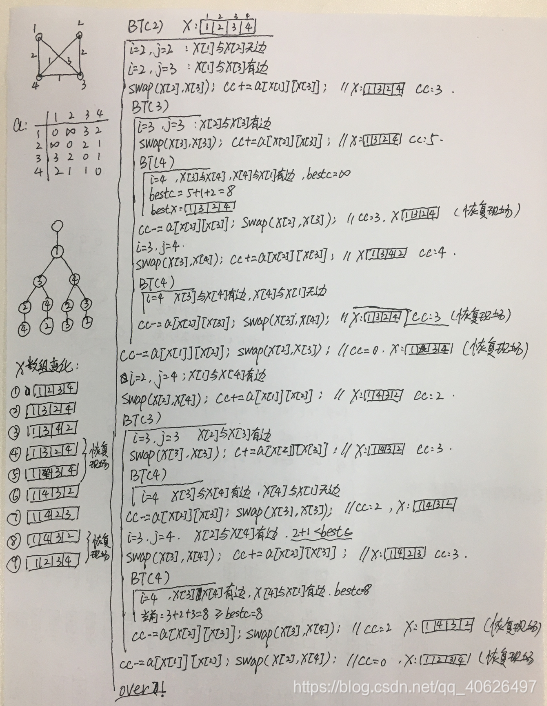 1 2
2 2 3
1 1
4 3
a: 1 2 3 4
1 0 ∞ 3 2
2 ∞ 0 2 1
3 3 2 0 1
4 2 1 1 0
1
3 4
2 4 2 3
4 2 3 2
X数组变化:
① 1 2 3 4
② 1 3 2 4
③ 1 3 4 2
④ 1 3 2 4
⑤ 1 3 4
恢复现场
⑥ 1 4 3 2
⑦ 1 4 2 3
⑧ 1 4 3 2
⑨ 1 2 3 4
恢复现场
1 2 3 4
BT(2) X: 1 2 3 4
i=2, j=2 : X[1]与X[2]无边
i=2, j=3 : X[1]与X[3]有边
swap(X[2],X[3]); cc+=a[X[1]][X[2]]; //X:1 3 2 4 cc=3.
BT(3)
i=3, j=3 : X[2]与X[3]有边
swap(X[3],X[3]); cc+=a[X[2]][X[3]]; //X:1 3 2 4 cc=5.
BT(4)
i=4, X[3]与X[4], X[4]与X[1]有边, bestc=∞
bestc=5+1+2=8
bestx=1 3 2 4
cc-=a[X[2]][X[3]]; swap(X[3],X[3]); //cc=3, X 1 3 2 4 (恢复现场)
i=3, j=4.
swap(X[3],X[4]); cc+=a[X[2]][X[3]]; //X 1 3 4 2 cc=4.
BT(4)
i=4 X[3]与X[4]有边, X[4]与X[1]无边
cc-=a[X[2]][X[3]]; swap(X[3],X[4]); //X:1 3 2 4 cc=3 (恢复现场)
cc-=a[X[1]][X[2]]; swap(X[2],X[3]); //cc=0. X:1 3 4 (恢复现场)
i=2, j=4 ; X[1]与X[4]有边
swap(X[2],X[4]); cc+=a[X[1]][X[2]]; //X:1 4 3 2 cc=2.
BT(3)
i=3, j=3 X[2]与X[3]有边
swap(X[3],X[3]); c+=a[X[2]][X[3]]; //X:1 4 3 2 cc=3.
BT(4)
i=4 X[3]与X[4]有边, X[4]与X[1]无边
cc-=a[X[2]][X[3]]; swap(X[3],X[3]); //cc=2, X:1 4 3 2
i=3, j=4. X[2]与X[4]有边. 2+1<bestc
swap(X[3],X[4]); cc+=a[X[2]][X[3]]; //X:1 4 2 3 cc=3.
BT(4)
i=4, X[3]与X[4]有边, X[4]与X[1]有边. bestc=8
当前=3+2+3=8≥bestc=8
cc-=a[X[2]][X[3]]; swap(X[3],X[4]); //cc=2 X:1 4 3 2 (恢复现场)
cc-=a[X[1]][X[2]]; swap(X[2],X[4]); //cc=0, X:1 2 3 4 (恢复现场
over了!
https://blog.csdn.net/qq_40626497